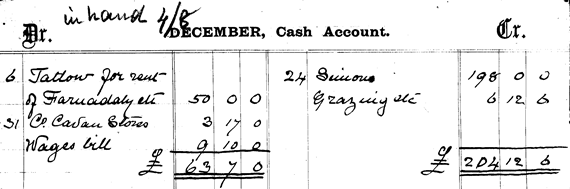 in hand 4/8
Dr. DECEMBER, Cash Account. Cr.
6 Tatlow for rent
of Farnadaly etc 50 0 0
31 Co Cavan Stores 3 17 0
Wages bill 9 10 0
£ 63 7 0
24 Simons 198 0 0
Grazing etc 6 12 6
£ 204 12 6